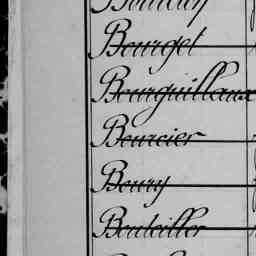 Bourget
Bourguillaux
Bourcier
Boury
Bouteiller